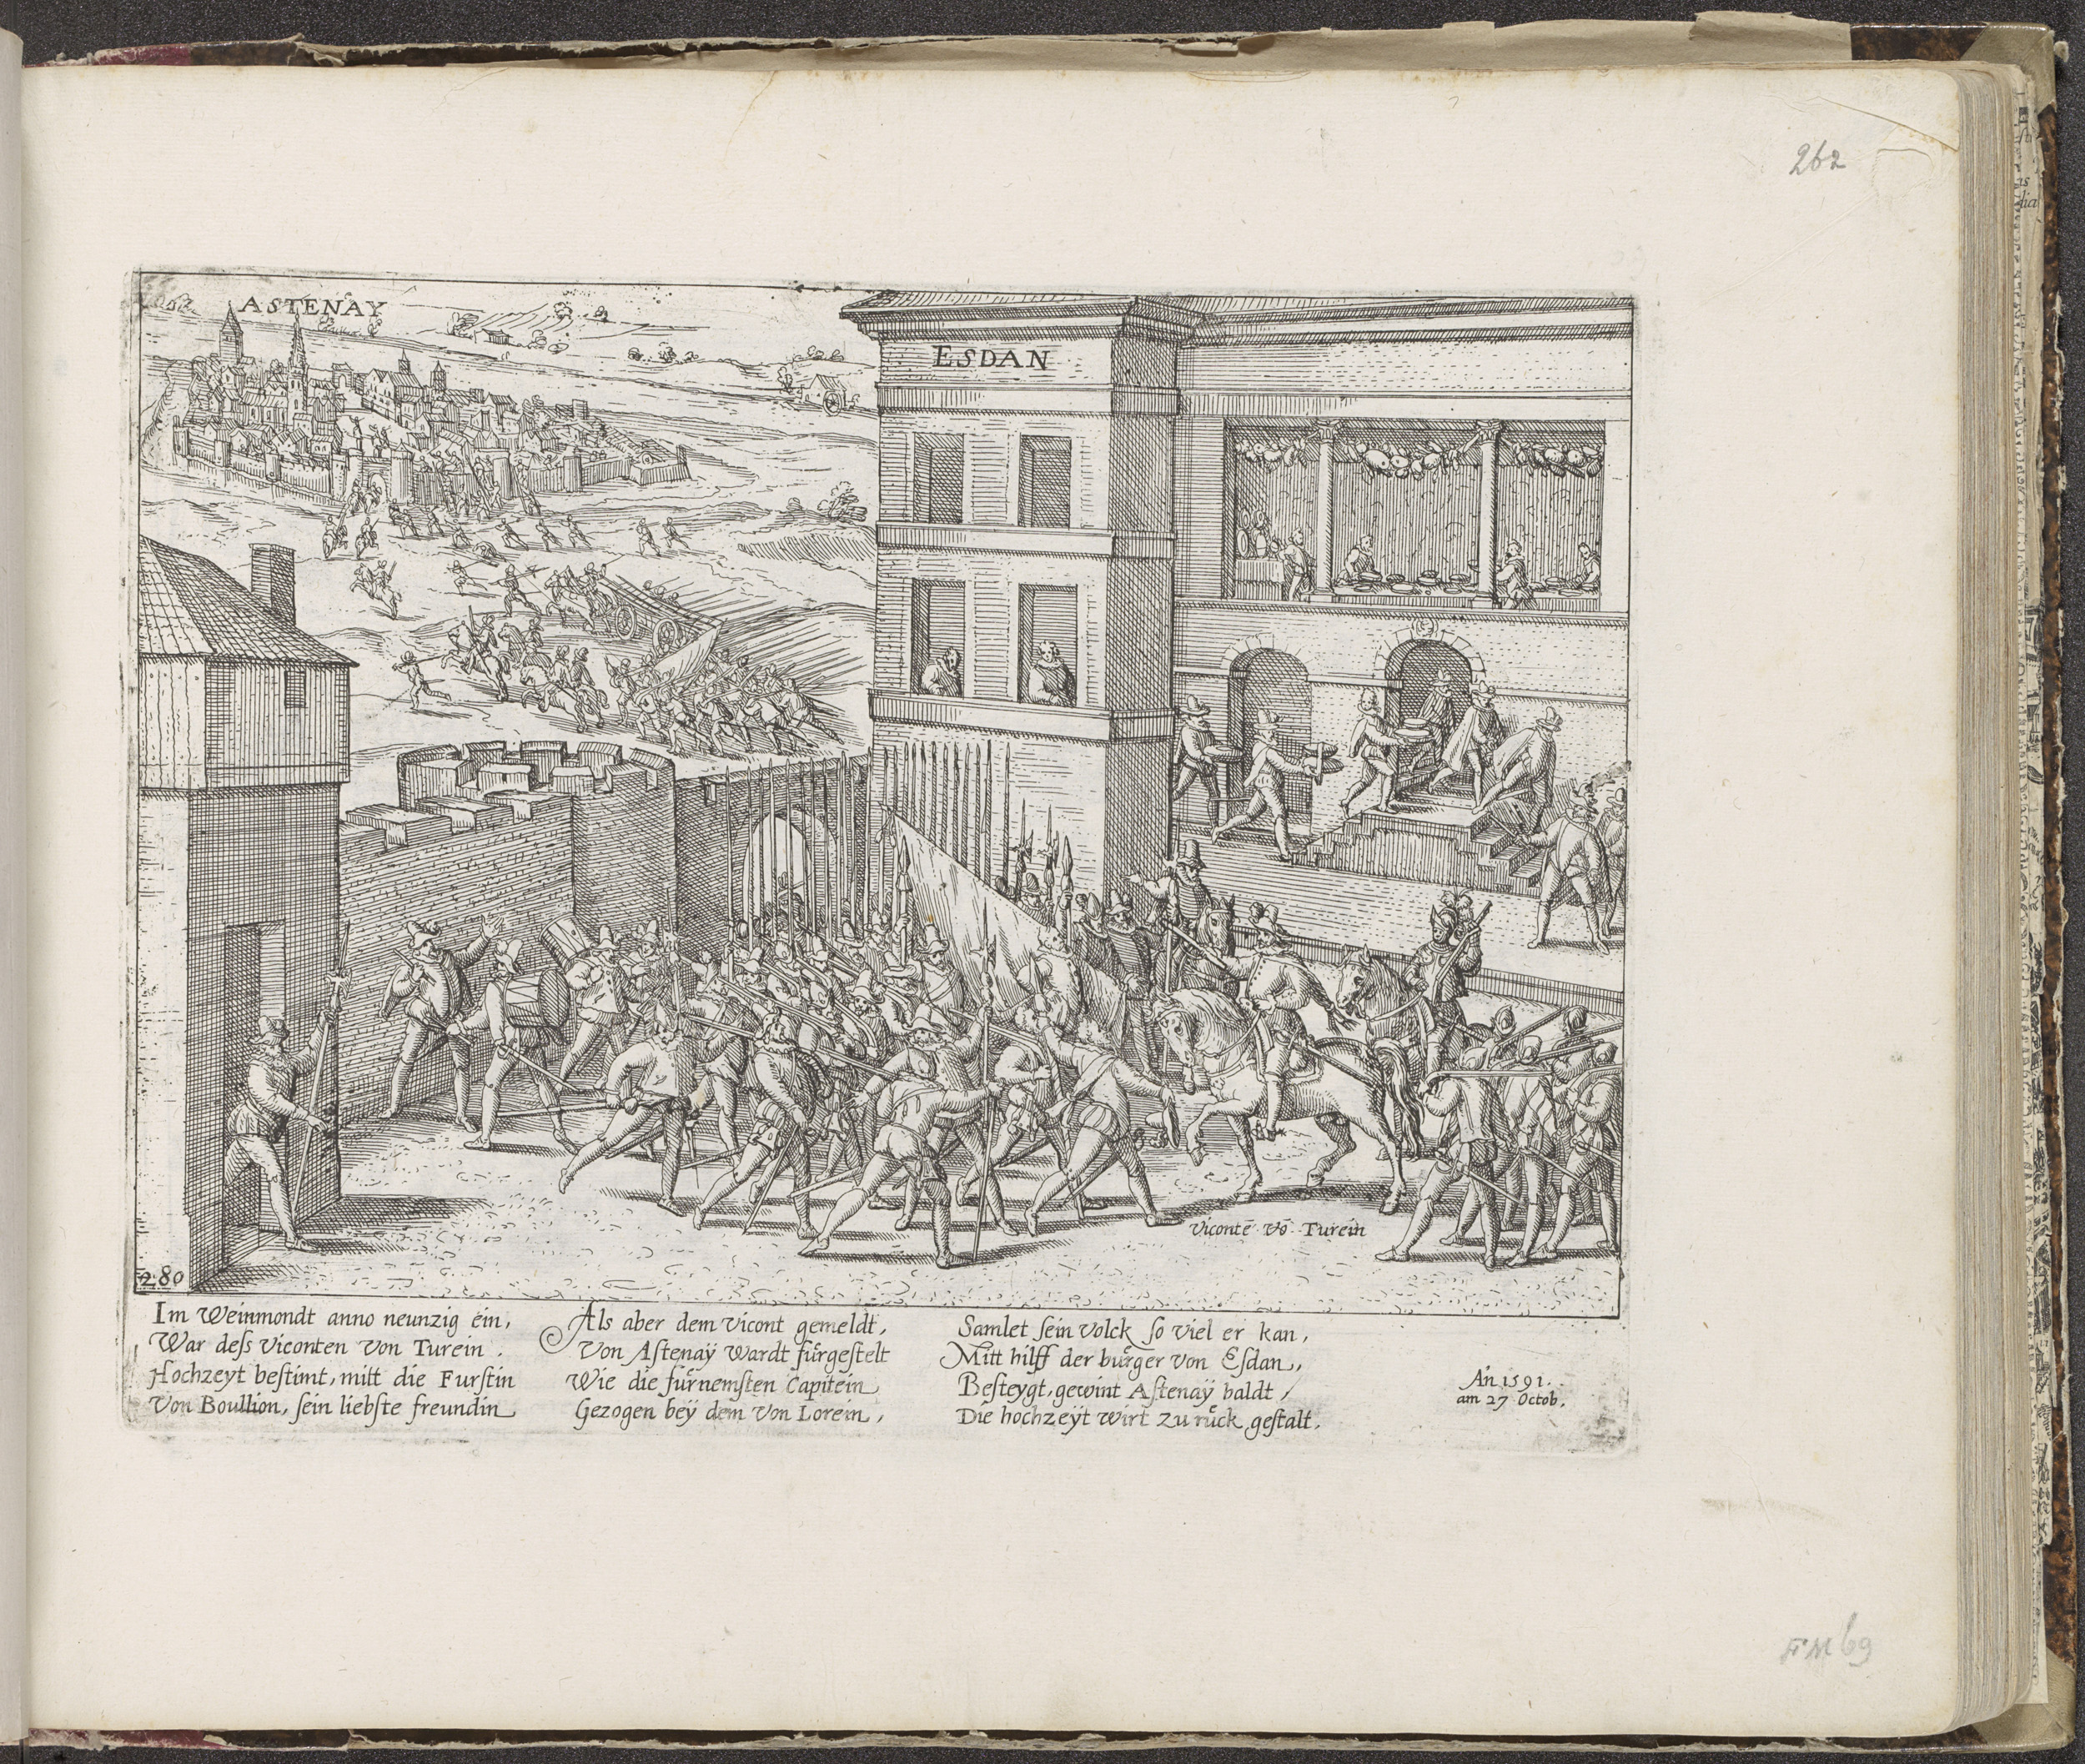 262
ASTENAY
ESDAN
Vicontē vō Turein
280
Im Weinmondt anno neunzig ein,
War deſs Viconten von Turein.
Hochzeyt beſtimt, mitt die Furſtin
Von Boullion, ſein liebſte freundin
Als aber dem vicont gemeldt,
Von Aſtenaÿ wardt fuͤrgeſtelt
Wie die fuͤrnemſten Capitein
Gezogen beÿ dem von Lorein,
Samlet ſein volck ſo viel er kan,
Mitt hilff der buͤrger von Eſdan,
Beſteygt, gewint Aſtenaÿ baldt,
Die hochzeÿt wirt zu ruͤck geſtalt.
An̄ 1591.
am 27 Octob.
FM 69